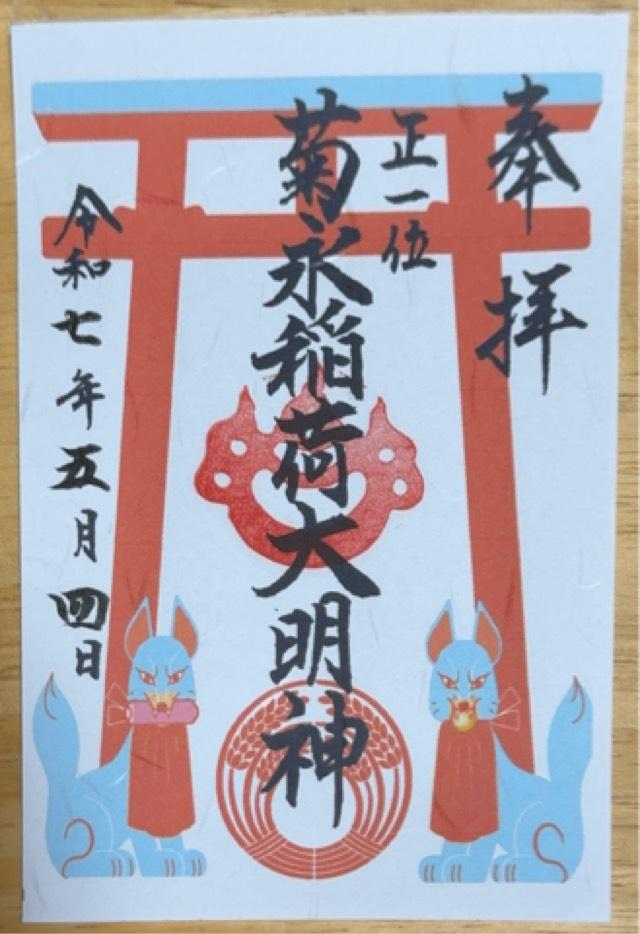 奉拝
正一位
菊永稲荷大明神
令和七年五月四日